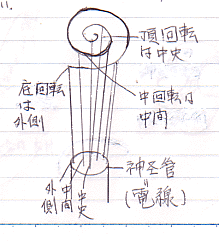 頂回転
は中央
底回転
は
外側
中回転は
中間
外側
中間
中央
神圣管
(電線)